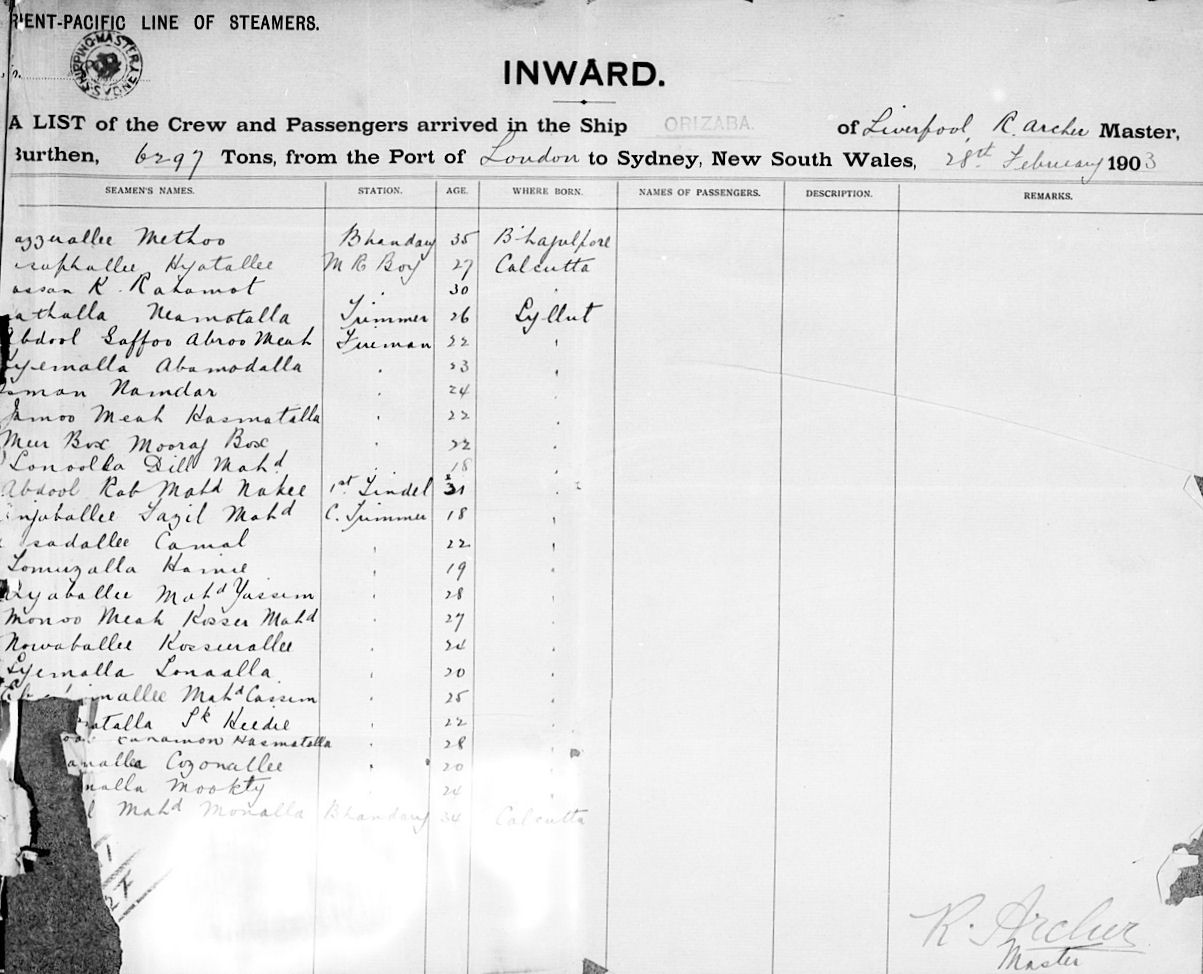 RIENT-PACIFIC LINE OF STEAMERS.
SHIPPING MASTER SYDNEY
INWARD.
A LIST of the Crew and Passengers arrived in the Ship ORIZABA. of Liverpool, R. Archer Master,
Burthen, 6297 Tons, from the Port of London to Sydney, New South Wales, 28st February 1903
SEAMEN'S NAMES. STATION. AGE. WHERE BORN. NAMES OF PASSENGERS. DESCRIPTION. REMARKS.
Methoo Bhandary 35 B'hagulpore
Hyatallee M R Boy 27 Calcutta
assan K. Rahamot . 30 .
athalla Neamotalla Trimmer 26 Syllut
Abdool Gaffoo Abroo Meah Fireman 22 '
Syemalla Abamodalla . 23 '
sman Namdar . 24 .
Jamoo Meah Hasmatalla ' 22 .
Meer Box Mooraj Box . 22 .
Sonoolla Dill Mahd . 18 .
Abdool Rab Mahd Nakee 1st Tindel 31 .
njaballee Fazil Mahd C. Trimmer 18 '
sadallee Camal ' 22 '
Tomuzalla Hamie ' 19 .
Ayaballee Mahd Yassim ' 28 .
Monoo Meah Kosser Mahd ' 27 .
Nowaballee Kosserallee . 24 .
Syemalla Sonaalla . 20 .
imallee Mahd Cassim . 25 .
atalla Sk Heedee . 22 .
Hasmatalla . 28 .
amalla Cozonallee . 20 .
nalla Mookty 24 .
l Mahd Monalla Bhandary 34 Calcutta
R. Archer
Master